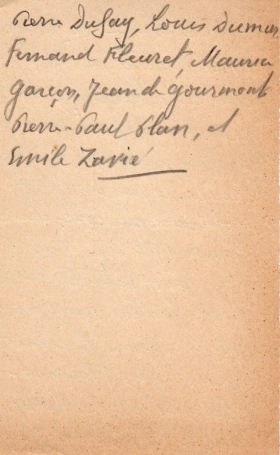 Pierre Dufay, Louis Dumur,
Fernand Fleuret Maurice
Garçon, Jean de Gourmont
Pierre-Paul Plan, et
Emile Zavie